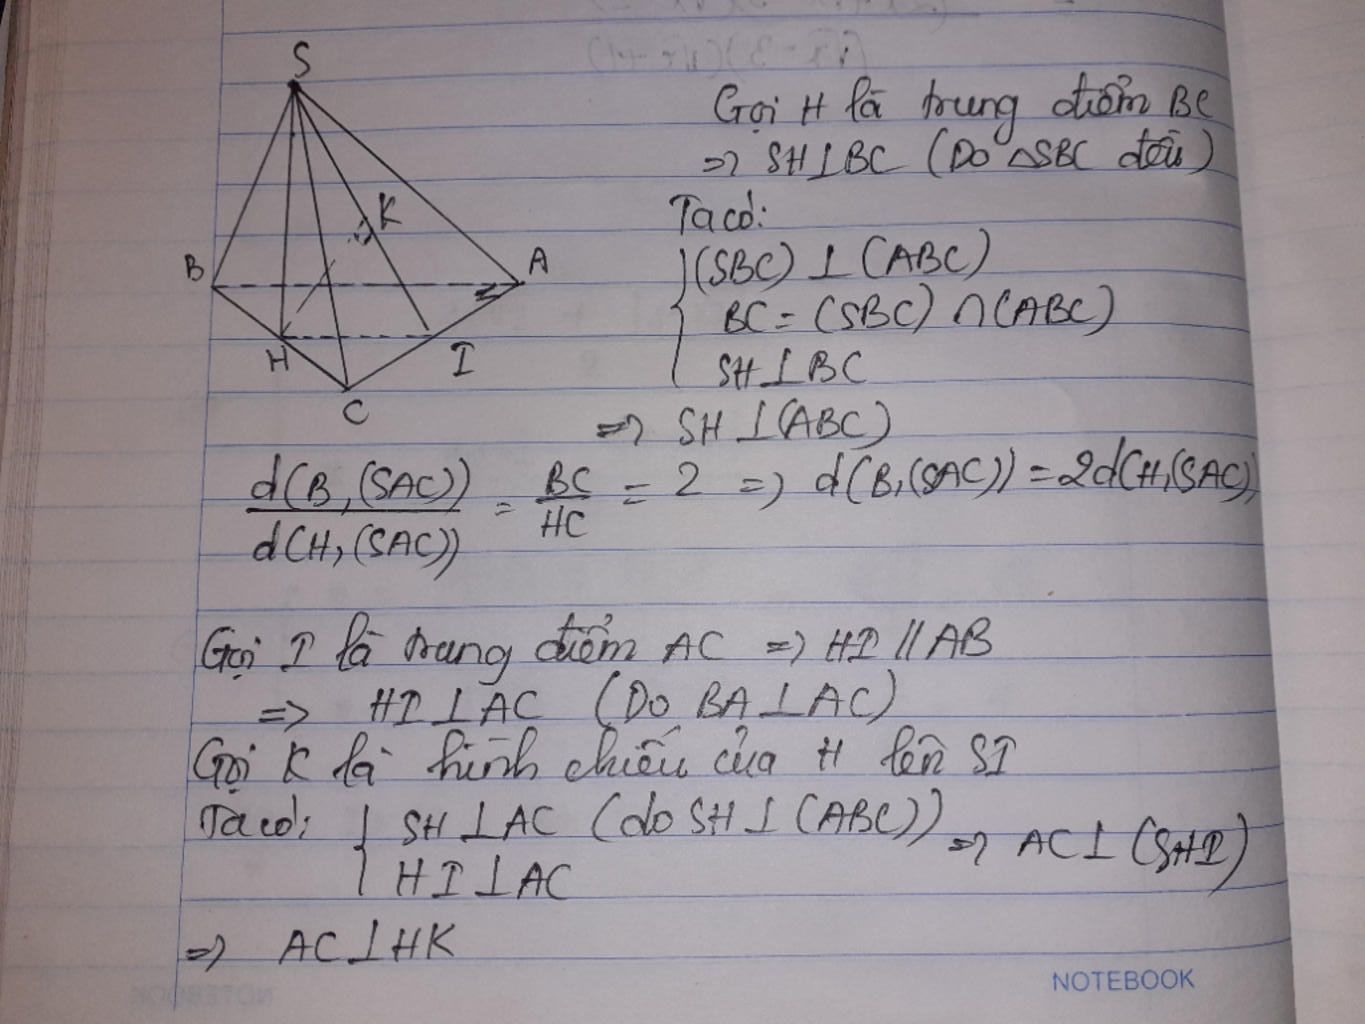 S
K
B
A
H
I
C
Gọi H là trung điểm BC
=> SH⊥BC (Do △SBC đều)
Ta có:
(SBC) ⊥ (ABC)
BC = (SBC) ∩ (ABC)
SH ⊥ BC
=> SH ⊥ (ABC)
d(B,(SAC))/d(H,(SAC)) = BC/HC = 2 => d(B,(SAC)) = 2d(H,(SAC)
Gọi I là trung điểm AC => HI // AB
=> HI ⊥ AC (Do BA ⊥ AC)
Gọi K là hình chiếu của H lên SI
Ta có: { SH ⊥ AC (do SH ⊥ (ABC)) => AC ⊥ (SHI)
HI ⊥ AC
=> AC ⊥ HK
NOTEBOOK